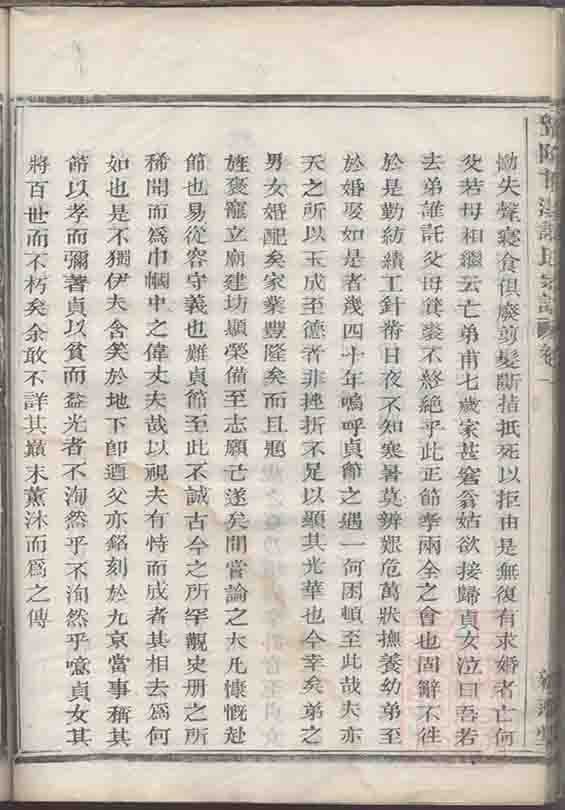 慟失聲寢食俱廢剪髮斷指抵死以拒由是無復有求婚者亡何
父若母相繼云亡弟甫七歲家甚窘翁姑欲接歸貞女泣曰吾若
去弟誰託父母箕裘不將絕乎此正節孝兩全之會也固辭不往
於是勤紡績工針黹日夜不知寒暑莫辨艱危萬狀撫養幼弟至
於婚娶如是者幾四十年嗚呼貞節之遇一何困頓至此哉夫亦
天之所以玉成至德者非挫折不足以顯其光華也今幸矣弟之
男女婚配矣家業豐隆矣而且題
旌褒寵立廟建坊顯榮備至志願已遂矣間嘗論之大凡慷慨赴
節也易從容守義也難貞節至此不誠古今之所罕覯史册之所
稀聞而爲巾幗中之偉丈夫哉以視夫有恃而成者其相去爲何
如也是不獨伊夫含笑於地下卽迺父亦銘刻於九京當事稱其
節以孝而彌著貞以貧而益光者不洵然乎不洵然乎噫貞女其
將百世而不朽矣余敢不詳其巔末薰沐而爲之傳
氏宗譜 卷一